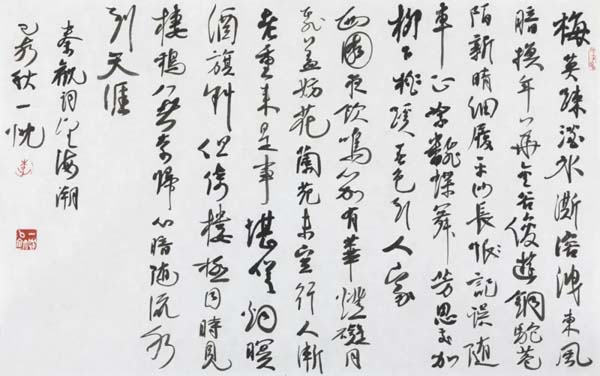 梅英疎淡冰澌溶洩東風
暗換年華金谷俊遊銅駝巷
陌新晴細履平沙長記誤隨
車正絮翻蝶舞芳思交加
柳下桃蹊春色到人家
西園夜飲鳴笳有華燈礙月
飛蓋妨花蘭苑未空行人漸
老重來是事堪嗟煙暝
酒旗斜但倚樓極目時見
棲鴉無奈歸心暗隨流水
到天涯
秦觀詞望海潮
己亥秋一忱